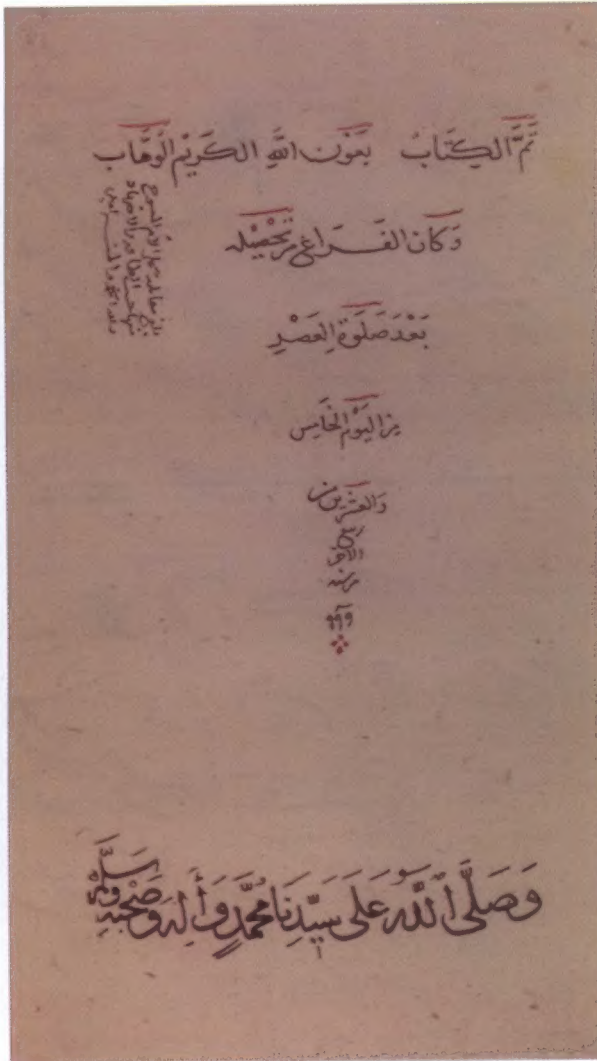 تَمَّ الكِتَابُ بعَوْن اللهِ الكَريْم الوَهَّاب
وَكان الفَرَاغ من تحْصيْله
بَعْدَ صَلوٰة العَصْرِ
من اليَوْم الخَامِس
والعشرين
ربيع
الآخر
من سنه
٩٩٦
وَصَلَّى اللهُ عَلَى سَيِّدِنَا مُحَمَّدٍ وَآلِهِ وَصَحْبِهِ وَسَلَّمَ